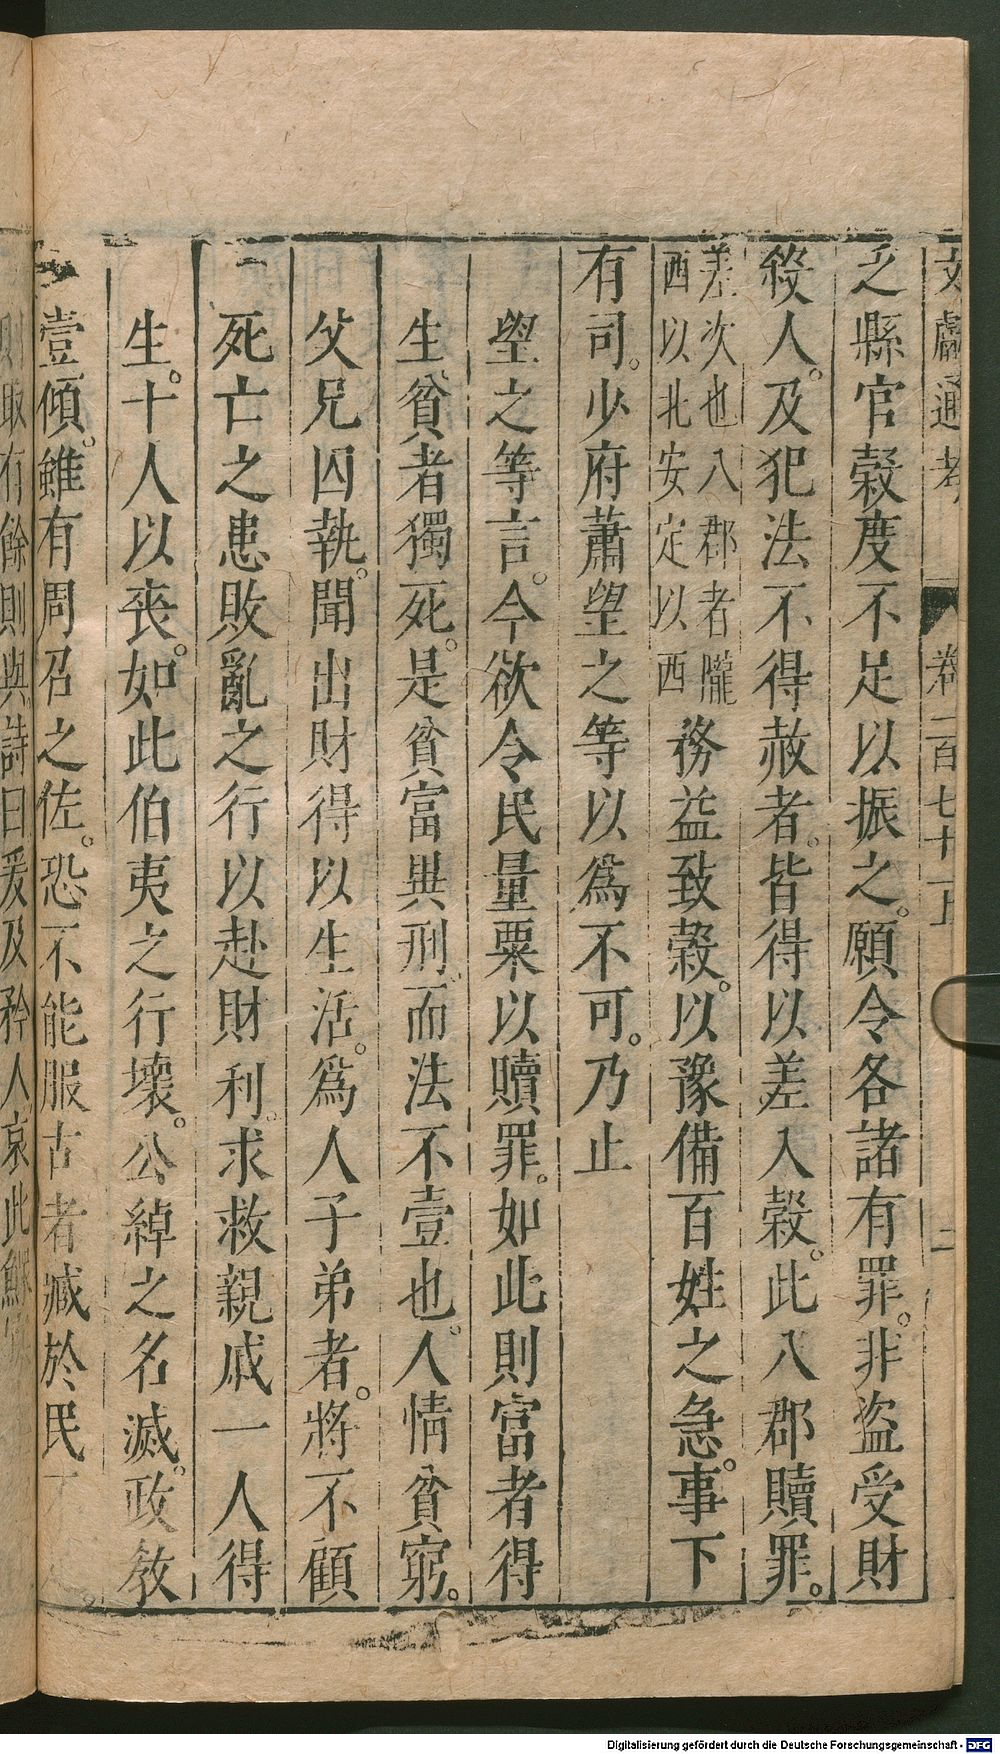 文獻通考 卷一百七十一上 二
之縣官穀度不足以振之。願令各諸有罪。非盜受財
殺人。及犯法不得赦者。皆得以差入穀。此八郡贖罪。
差次也八郡者隴
西以北安定以西
務益致穀。以豫備百姓之急。事下
有司。少府蕭望之等以爲不可。乃止
望之等言。今欲令民量粟以贖罪。如此則富者得
生、貧者獨死。是貧富異刑、而法不壹也。人情貧窮。
父兄囚執。聞出財得以生活。爲人子弟者。將不顧
死亡之患敗亂之行以赴財利。求救親戚一人得
生。十人以喪。如此伯夷之行壞。公綽之名滅。政教
壹傾。雖有周召之佐。恐不能服古者臧於民
則取有餘則與詩曰爰及矜人哀此鰥
Digitalisierung gefördert durch die Deutsche Forschungsgemeinschaft - DFG